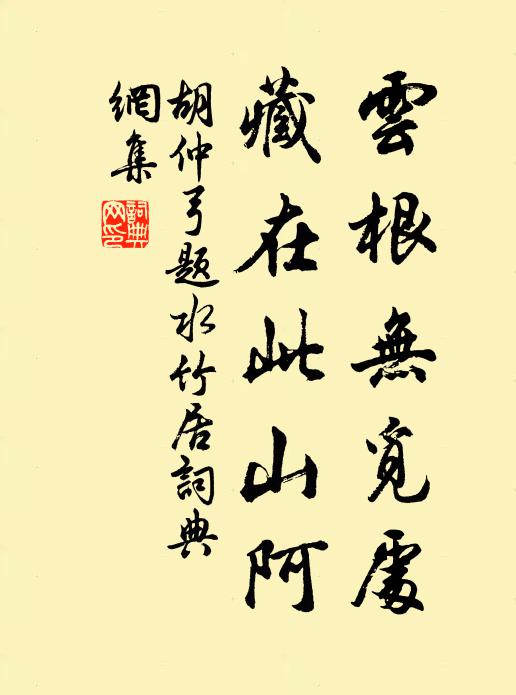 雲根無覓處
藏在此山阿
胡仲弓題水竹居詞典
網集
詞典
网印